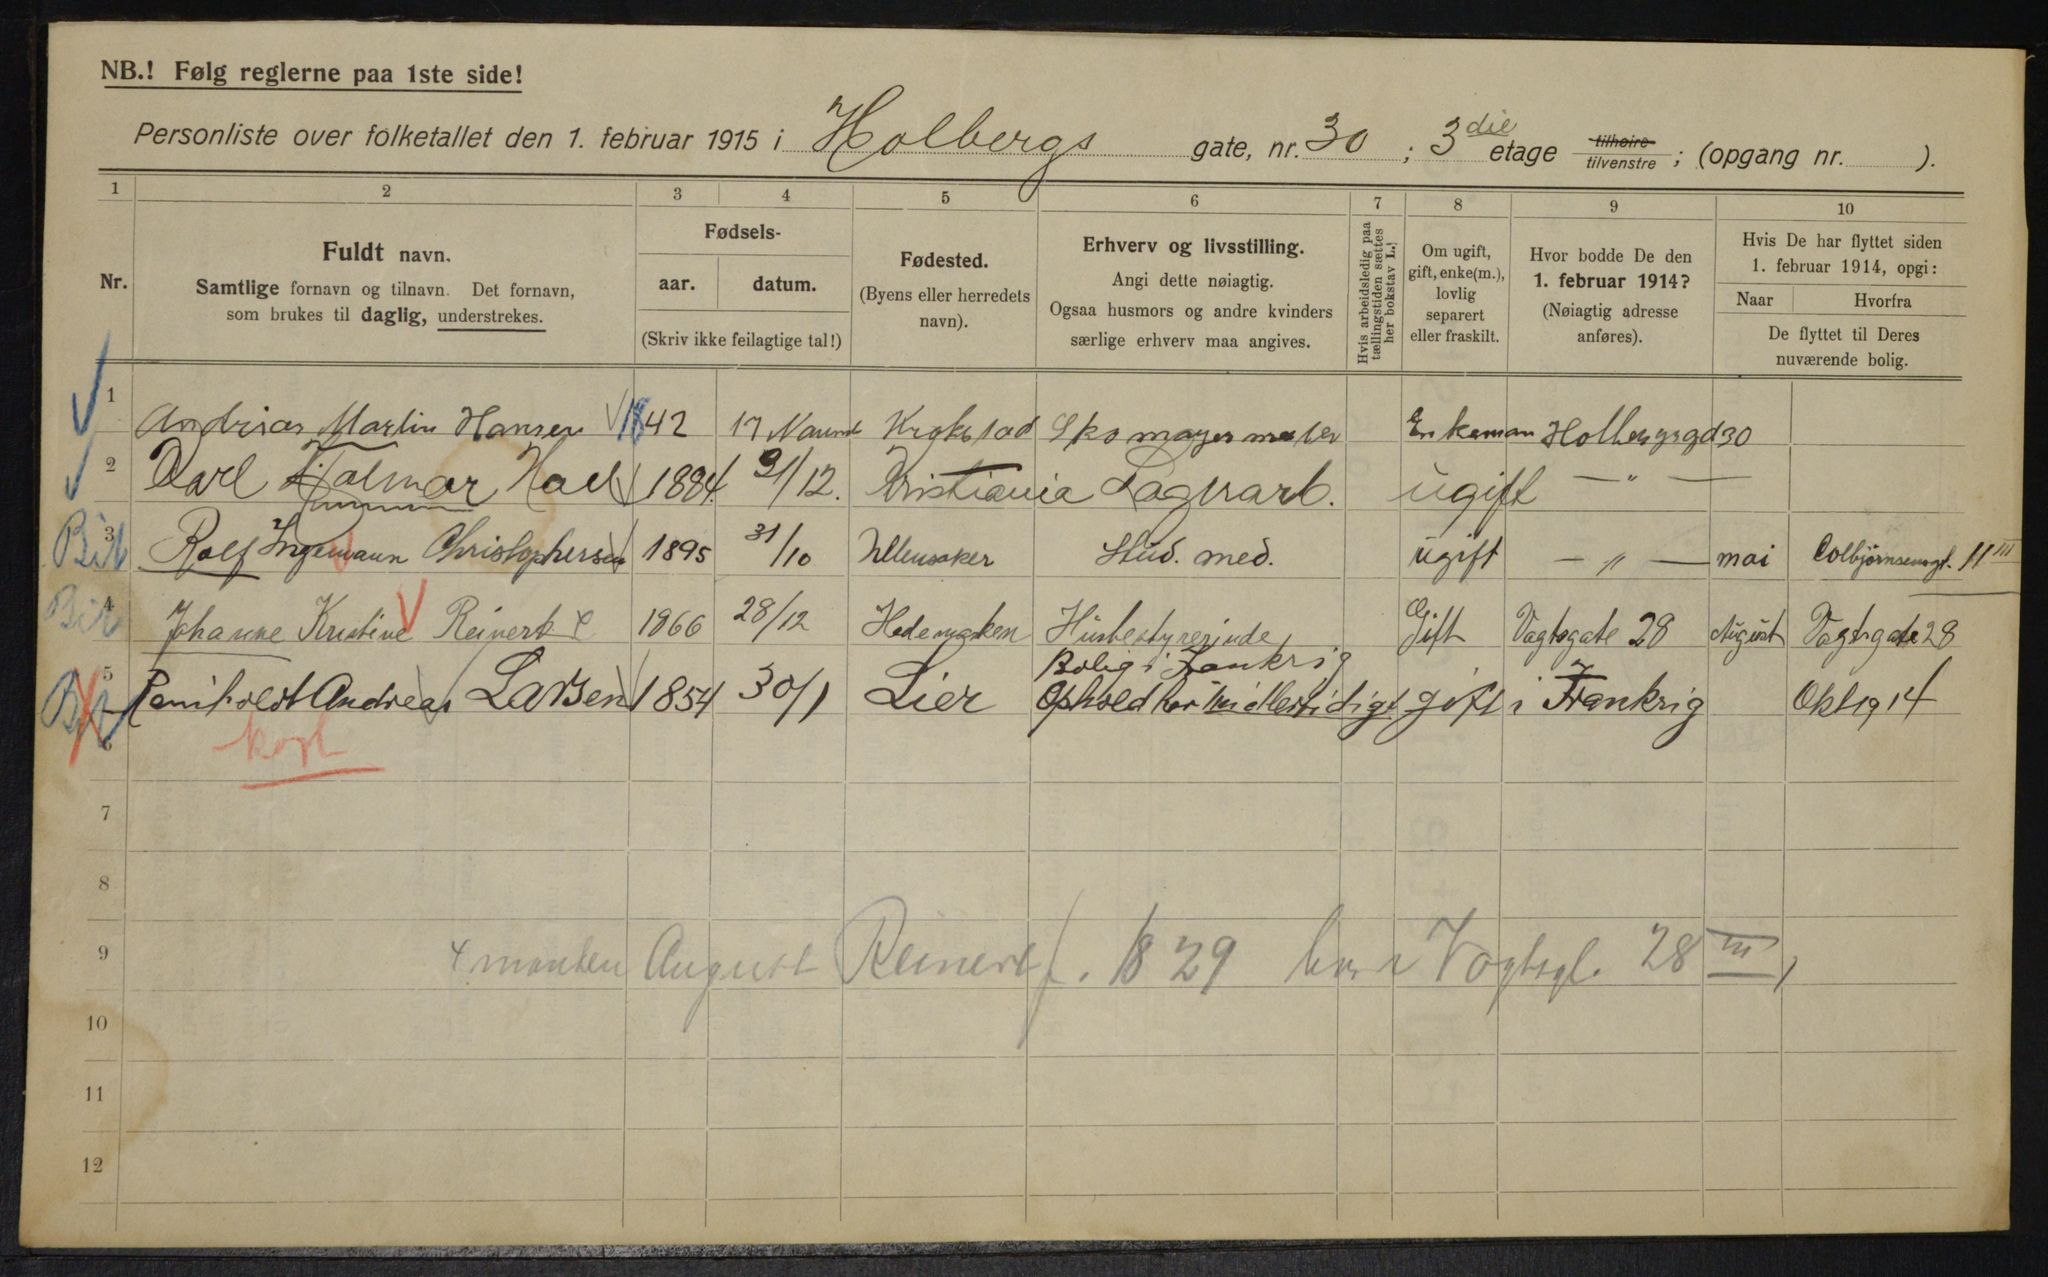 NB.! Følg reglerne paa 1ste side!
Personliste over folketallet den 1. februar 1915 i Holbergs gate, nr. 30 ; 3die etage tilhøire tilvenstre ; (opgang nr. ).
1 2 3 4 5 6 7 8 9 10
Nr.
Fuldt navn.
Samtlige fornavn og tilnavn. Det fornavn,
som brukes til daglig, understrekes.
Fødsels-
aar. datum.
(Skriv ikke feilagtige tal!)
Fødested.
(Byens eller herredets
navn).
Erhverv og livsstilling.
Angi dette nøiagtig.
Ogsaa husmors og andre kvinders
særlige erhverv maa angives.
Hvis arbeidsledig paa
tællingstiden sættes
her bokstav L.!
Om ugift,
gift, enke(m.),
lovlig
separert
eller fraskilt.
Hvor bodde De den
1. februar 1914?
(Nøiagtig adresse
anføres).
Hvis De har flyttet siden
1. februar 1914, opgi:
Naar Hvorfra
De flyttet til Deres
nuværende bolig.
1 Andreas Martin Hansen 1842 17 Krokstad Skomagermester Enkeman Holbergsgd 30
2 Carl Hjalmar 1884 31/12. Kristiania Lagerarb. ugift — " —
Bit 3 Rolf Ingemann Christophersen 1895 31/10 Ullensaker Stud. med. ugift — " — mai Colbjørnsensgt. 11 III
Bit 4 Johanne Kristine Reinert 1866 28/12 Hedemarken Husbestyrerinde Gift Vogtsgate 28 August Vogtsgate 28
Bolig i Frankrig
5 Reinholdt Andreas Larsen 1854 30/1 Lier Ophold her midlertidigt gift i Frankrig Okt 1914
6
kort
7
8
9 manden August Reinert f. 1829 bor i Vogtsgt. 28 III
10
11
12